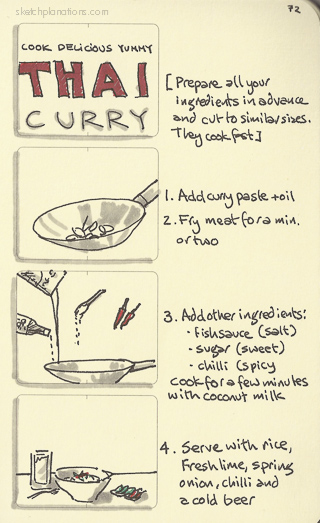 sketchplanations.com
72
COOK DELICIOUS YUMMY
THAI
CURRY
[Prepare all your
ingredients in advance
and cut to similar sizes.
They cook fast]
1. Add curry paste + oil
2. Fry meat for a min.
or two
3. Add other ingredients:
- fish sauce (salt)
- sugar (sweet)
- chilli (spicy
cook for a few minutes
with coconut milk
4. Serve with rice,
Fresh lime, spring
onion, chilli and
a cold beer